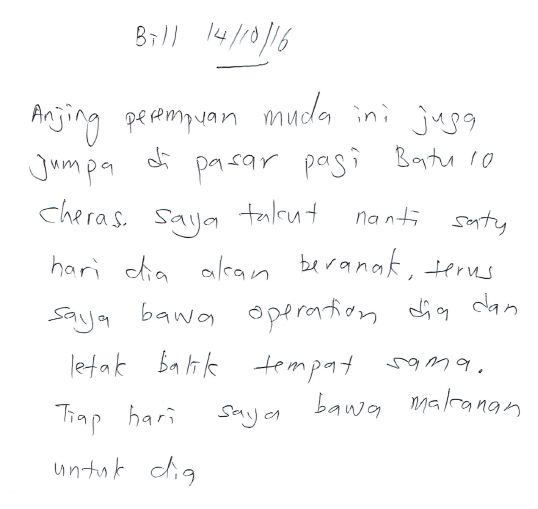 Bill 14/10/16
Anjing perempuan muda ini juga
jumpa di pasar pagi Batu 10
Cheras. Saya takut nanti satu
hari dia akan beranak, terus
saya bawa operation dia dan
letak balik tempat sama.
Tiap hari saya bawa makanan
untuk dia